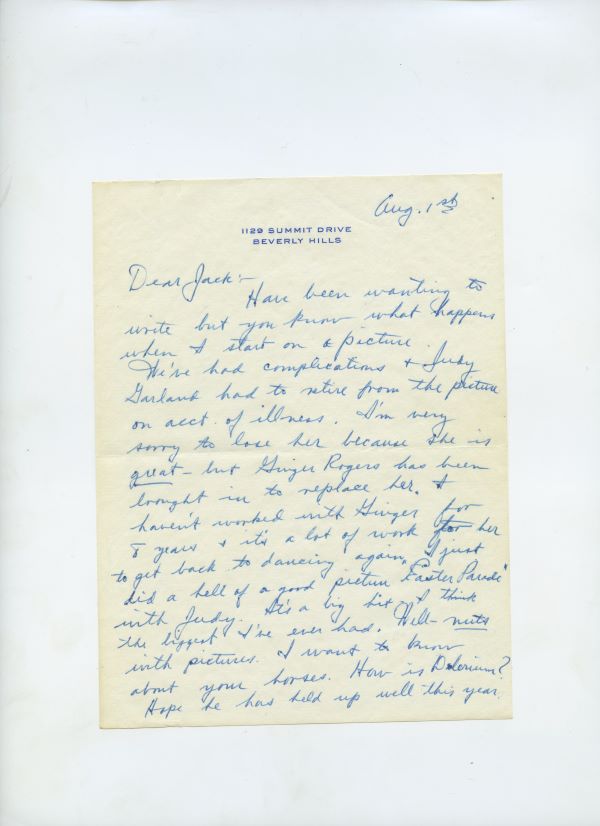 Aug. 1st
1129 SUMMIT DRIVE
BEVERLY HILLS
Dear Jack:-
Have been wanting to
write but you know what happens
when I start on a picture.
We've had complications & Judy
Garland had to retire from the picture
on acct. of illness. I'm very
sorry to lose her because she is
great - but Ginger Rogers has been
brought in to replace her. I
haven't worked with Ginger for
8 years & it's a lot of work for her
to get back to dancing again. I just
did a hell of a good picture "Easter Parade"
with Judy. It's a big hit - I think
the biggest I've ever had. Well - nuts
with pictures. I want to know
about your horses. How is Delerium?
Hope he has held up well this year.